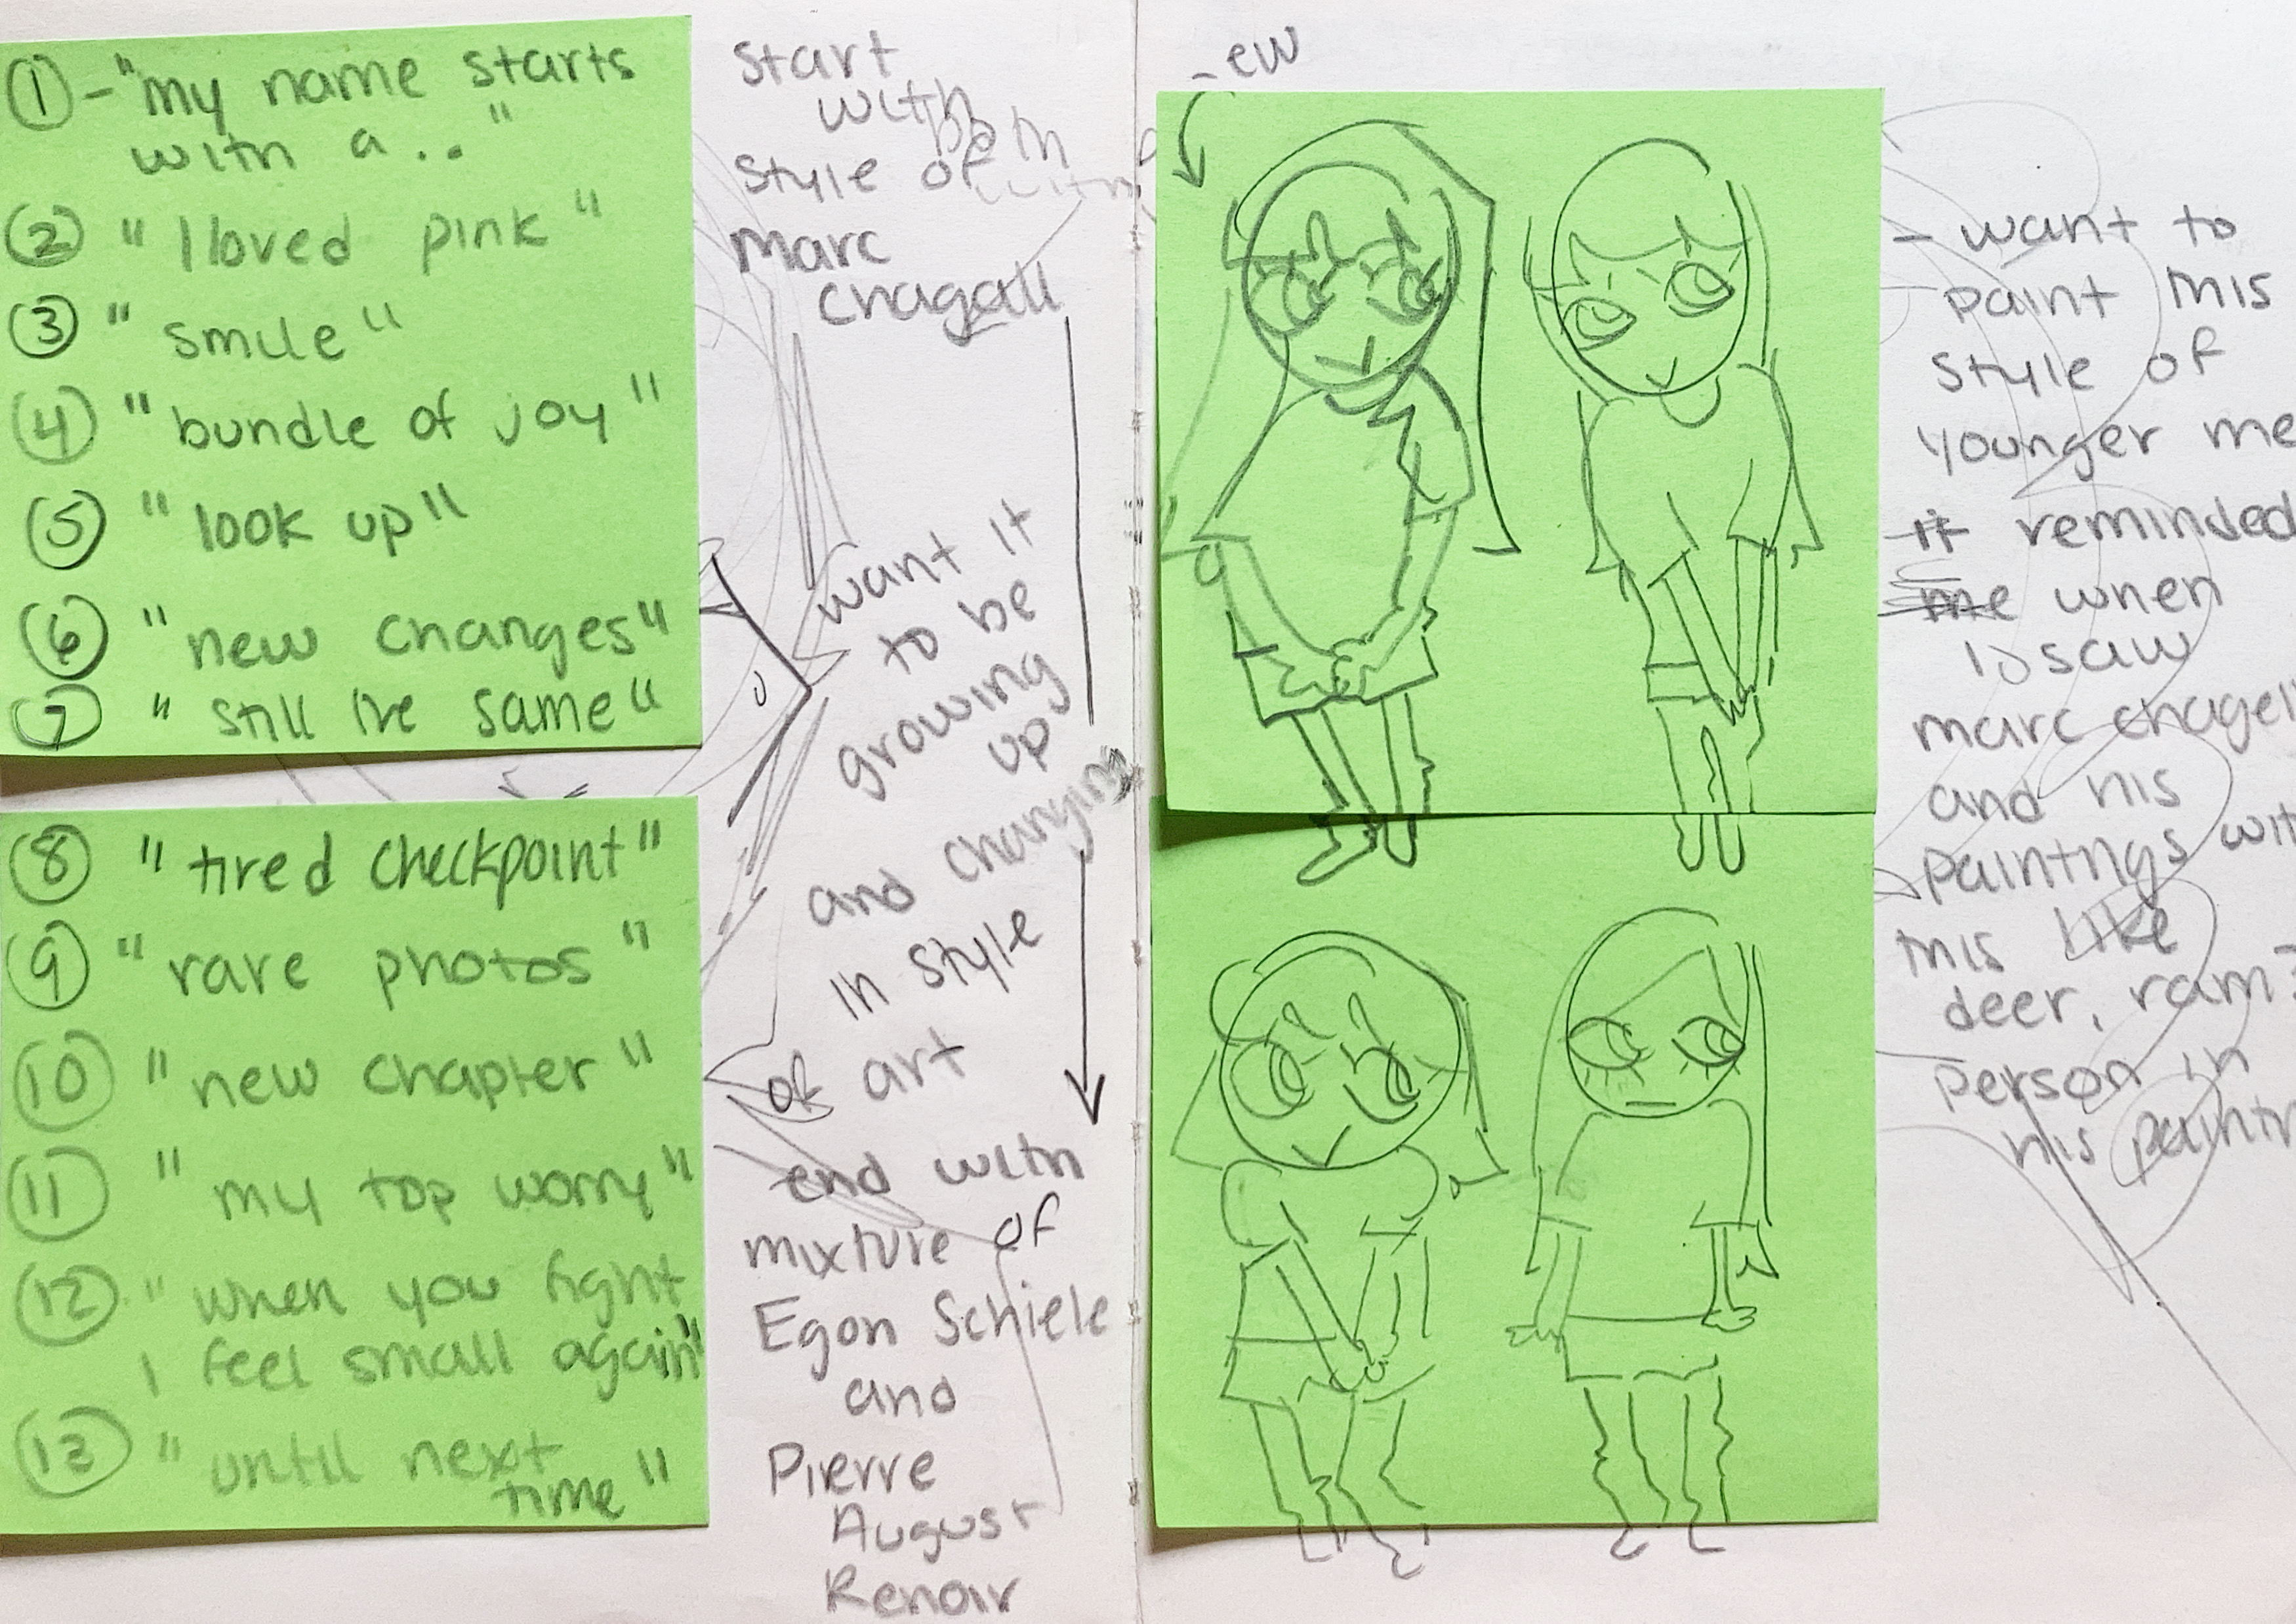 ① - "my name starts
with a .. "
② "I loved pink"
③ "smile"
④ "bundle of joy"
⑤ "look up"
⑥ "new changes"
⑦ "still the same"
⑧ "tired checkpoint"
⑨ "rare photos"
⑩ "new chapter"
⑪ "my top worry"
⑫ "when you fight
I feel small again"
⑬ "until next
time"
start
with
style of
Marc
chagall
want it
to be
growing
up
and changing
in style
of art
end with
mixture of
Egon Schiele
and
Pierre
August
Renoir
- ew
- want to
paint this
style of
younger me
it reminded
me when
I saw
marc chagell
and his
paintngs
this like
deer, ram?
person in
his